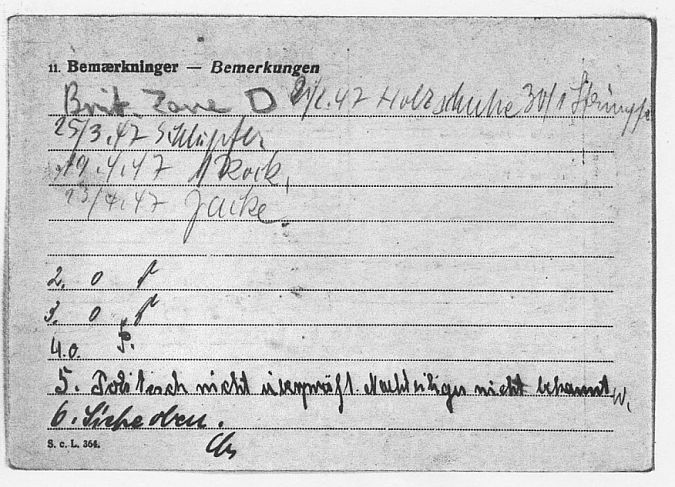 11. Bemærkninger — Bemerkungen
Brit. Zone D 2/2.47 Holzschuhe 30/1 Strümpfe
25/3.47 Schlüpfer
19.4.47 1 Rock,
23/4.47 Jacke.
2. 0
3. 0
4.0. P.
5. Politisch nicht überprüft. Nachteiliges nicht bekannt W.
6. Siehe oben.
S. c. L. 364.